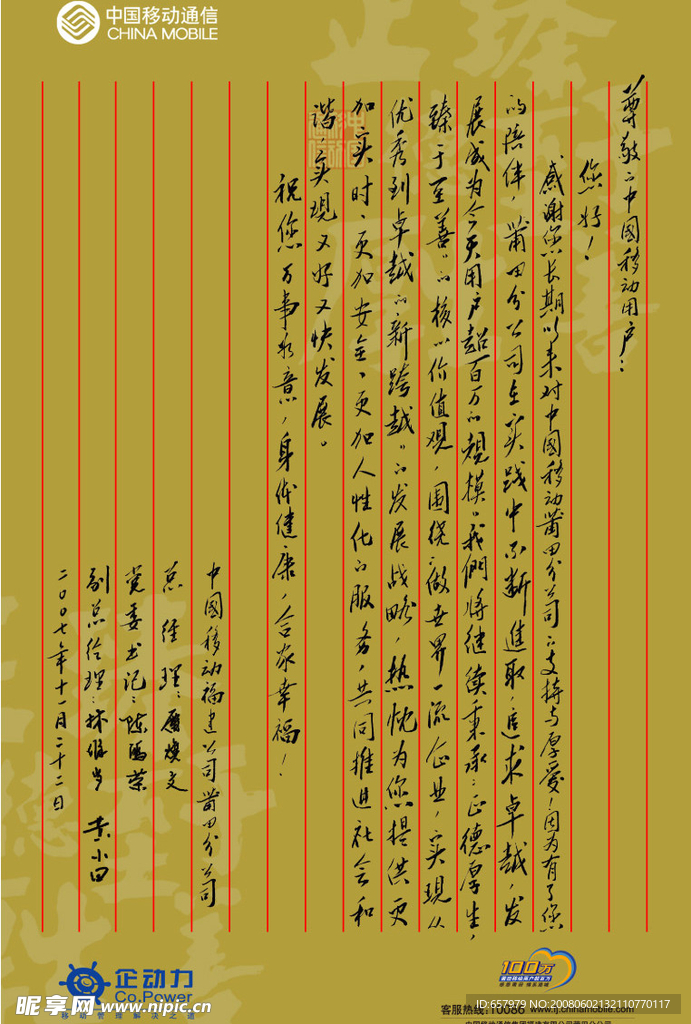 中国移动通信
CHINA MOBILE
尊敬的中国移动用户：
您好！
感谢您长期以来对中国移动莆田分公司的支持与厚爱！因为有了您
的陪伴，莆田分公司在实践中不断进取，追求卓越，发
展成为今天用户超百万的规模。我们将继续秉承“正德厚生，
臻于至善”的核心价值观，围绕“做世界一流企业，实现从
优秀到卓越的新跨越”的发展战略，热忱为您提供更
加实时、更加安全、更加人性化的服务，共同推进社会和
谐，实现又好又快发展。
祝您万事如意，身体健康，合家幸福！
中國移动福建公司莆田分公司
总经理：
党委书记：
副总经理： 黄小田
二〇〇七年十一月二十二日
企动力
Co.Power
移动管理解决之道
100万
客服热线:10086 www.ij.chinamobile.com
昵享网 www.nipic.cn
ID:657979 NO:20080602132110770117